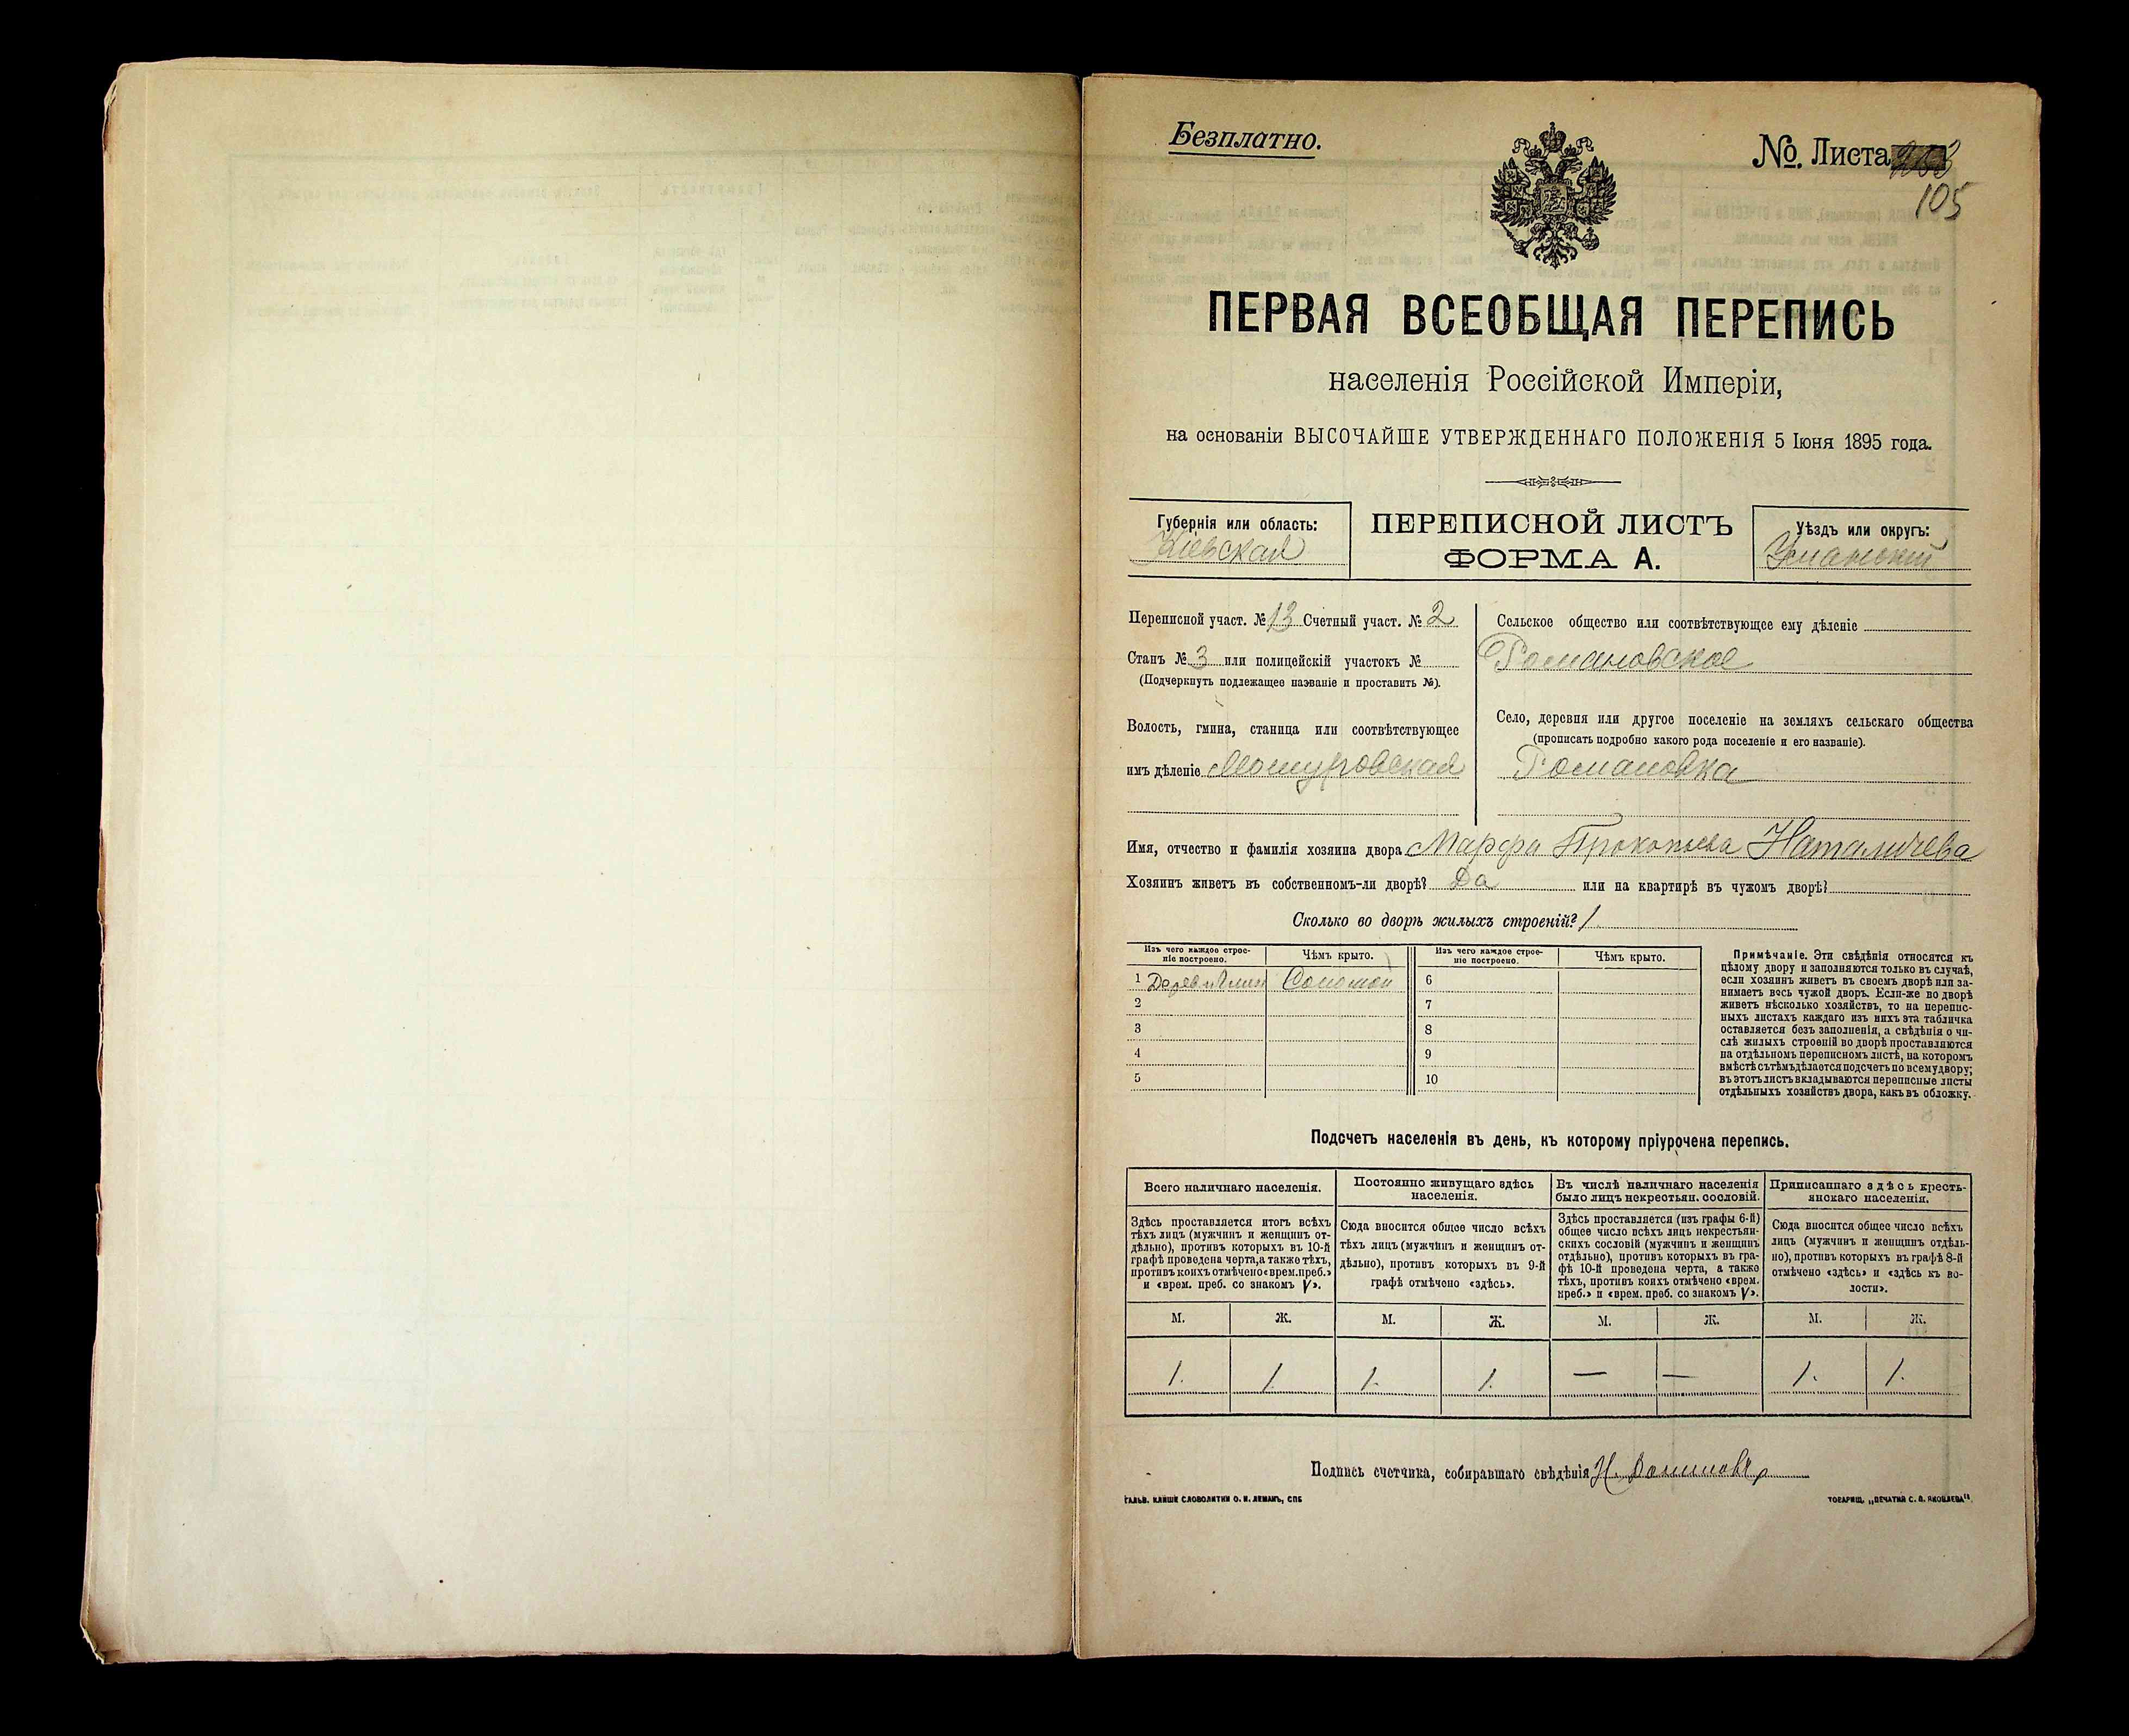 Безплатно.
№. Листа
105
ПЕРВАЯ ВСЕОБЩАЯ ПЕРЕПИСЬ
населенія Россійской Имперіи,
на основаніи ВЫСОЧАЙШЕ УТВЕРЖДЕННАГО ПОЛОЖЕНІЯ 5 Іюня 1895 года.
Губернія или область:
Кіевская
ПЕРЕПИСНОЙ ЛИСТЪ
ФОРМА А.
Уѣздъ или округъ:
Уманскій
Переписной участ. № 13 Счетный участ. № 2
Станъ № 3 или полицейскій участокъ №
(Подчеркнуть подлежащее названіе и проставить №).
Волость, гмина, станица или соотвѣтствующее
имъ дѣленіе Мошуровская
Сельское общество или соотвѣтствующее ему дѣленіе
Романовское
Село, деревня или другое поселеніе на земляхъ сельскаго общества
(прописать подробно какого рода поселеніе и его названіе).
Романовка
Имя, отчество и фамилія хозяина двора Марфа Прокопьева
Хозяинъ живетъ въ собственномъ-ли дворѣ? Да или на квартирѣ въ чужомъ дворѣ?
Сколько во дворѣ жилыхъ строеній? 1
Изъ чего каждое строе-
ніе построено.
Чѣмъ крыто.
1 Соломой
2
3
4
5
Изъ чего каждое строе-
ніе построено.
Чѣмъ крыто.
6
7
8
9
10
Примѣчаніе. Эти свѣдѣнія относятся къ
цѣлому двору и заполняются только въ случаѣ,
если хозяинъ живетъ въ своемъ дворѣ или за-
нимаетъ весь чужой дворъ. Если-же во дворѣ
живетъ нѣсколько хозяйствъ, то на перепис-
ныхъ листахъ каждаго изъ нихъ эта табличка
оставляется безъ заполненія, а свѣдѣнія о чи-
слѣ жилыхъ строеній во дворѣ проставляются
на отдѣльномъ переписномъ листѣ, на которомъ
вмѣстѣ съ тѣмъ дѣлается подсчетъ по всему двору;
въ этотъ листъ вкладываются переписные листы
отдѣльныхъ хозяйствъ двора, какъ въ обложку.
Подсчетъ населенія въ день, къ которому пріурочена перепись.
Всего наличнаго населенія.
Здѣсь проставляется итогъ всѣхъ
тѣхъ лицъ (мужчинъ и женщинъ от-
дѣльно), противъ которыхъ въ 10-й
графѣ проведена черта, а также тѣхъ,
противъ коихъ отмѣчено «врем. преб.»
и «врем. преб. со знакомъ V».
М. Ж.
1. 1.
Постоянно живущаго здѣсь
населенія.
Сюда вносится общее число всѣхъ
тѣхъ лицъ (мужчинъ и женщинъ от-
дѣльно), противъ которыхъ въ 9-й
графѣ отмѣчено «здѣсь».
М. Ж.
1. 1.
Въ числѣ наличнаго населенія
было лицъ некрестьян. сословій.
Здѣсь проставляется (изъ графы 6-й)
общее число всѣхъ лицъ некрестьян-
скихъ сословій (мужчинъ и женщинъ
отдѣльно), противъ которыхъ въ гра-
фѣ 10-й проведена черта, а также
тѣхъ, противъ коихъ отмѣчено «врем.
преб.» и «врем. преб. со знакомъ V».
М. Ж.
— —
Приписаннаго здѣсь кресть-
янскаго населенія.
Сюда вносится общее число всѣхъ
лицъ (мужчинъ и женщинъ отдѣль-
но), противъ которыхъ въ графѣ 8-й
отмѣчено «здѣсь» и «здѣсь къ во-
лости».
М. Ж.
1. 1.
Подпись счетчика, собиравшаго свѣдѣнія
ГАЛЬВ. КЛИШЕ СЛОВОЛИТНИ О. И. ЛЕМАНЪ, СПБ
ТОВАРИЩ. „ПЕЧАТНЯ С. П. ЯКОВЛЕВА".